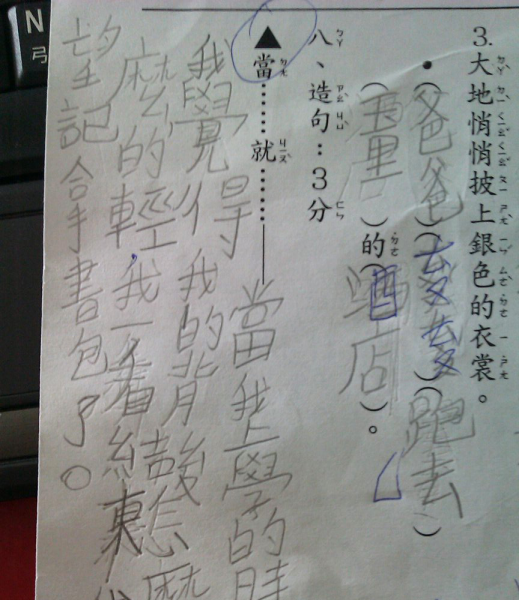 3.大地悄悄披上銀色的衣裳。
•(爸爸)()(跑去)
()的(店)。
八、造句:3分
▲當……就……
當我上學的時
我覺得我的背後怎麼
麼的輕,我一看結果
望記拿書包了。
N
弓